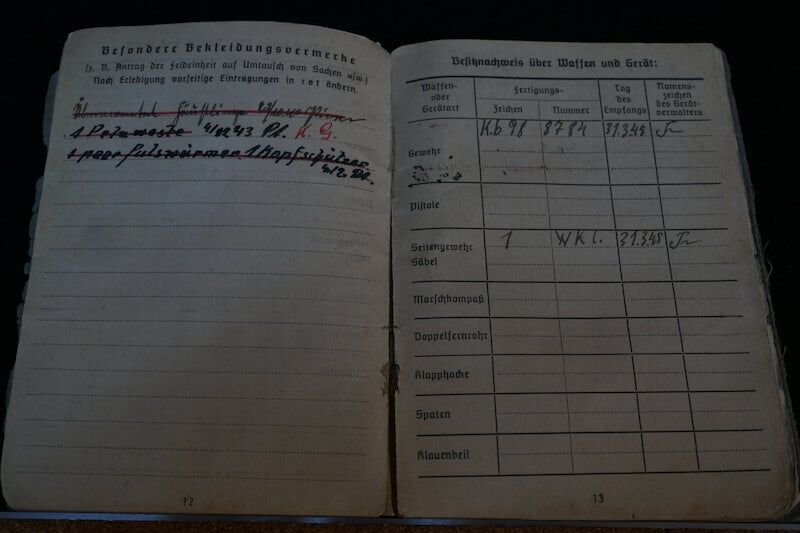 Besondere Bekleidungsvermerke
(z. B. Antrag der Feldeinheit auf Umtausch von Sachen usw.)
Nach Erledigung vorseitige Eintragungen in rot ändern.
1 Pelzweste 43 Pl. K. G.
1 paar Pulswärmer 1 Kopfschützer
12
Besitznachweis über Waffen und Gerät:
Waffen- oder Gerätart
Fertigungs-
Zeichen
Nummer
Tag des Empfangs
Namens- zeichen des Gerät- verwalters
Gewehr K.b 98 8784 31.3.45
Pistole
Seitengewehr Säbel 1 31.3.45
Marschkompaß
Doppelfernrohr
Klapphacke
Spaten
Klauenbeil
13